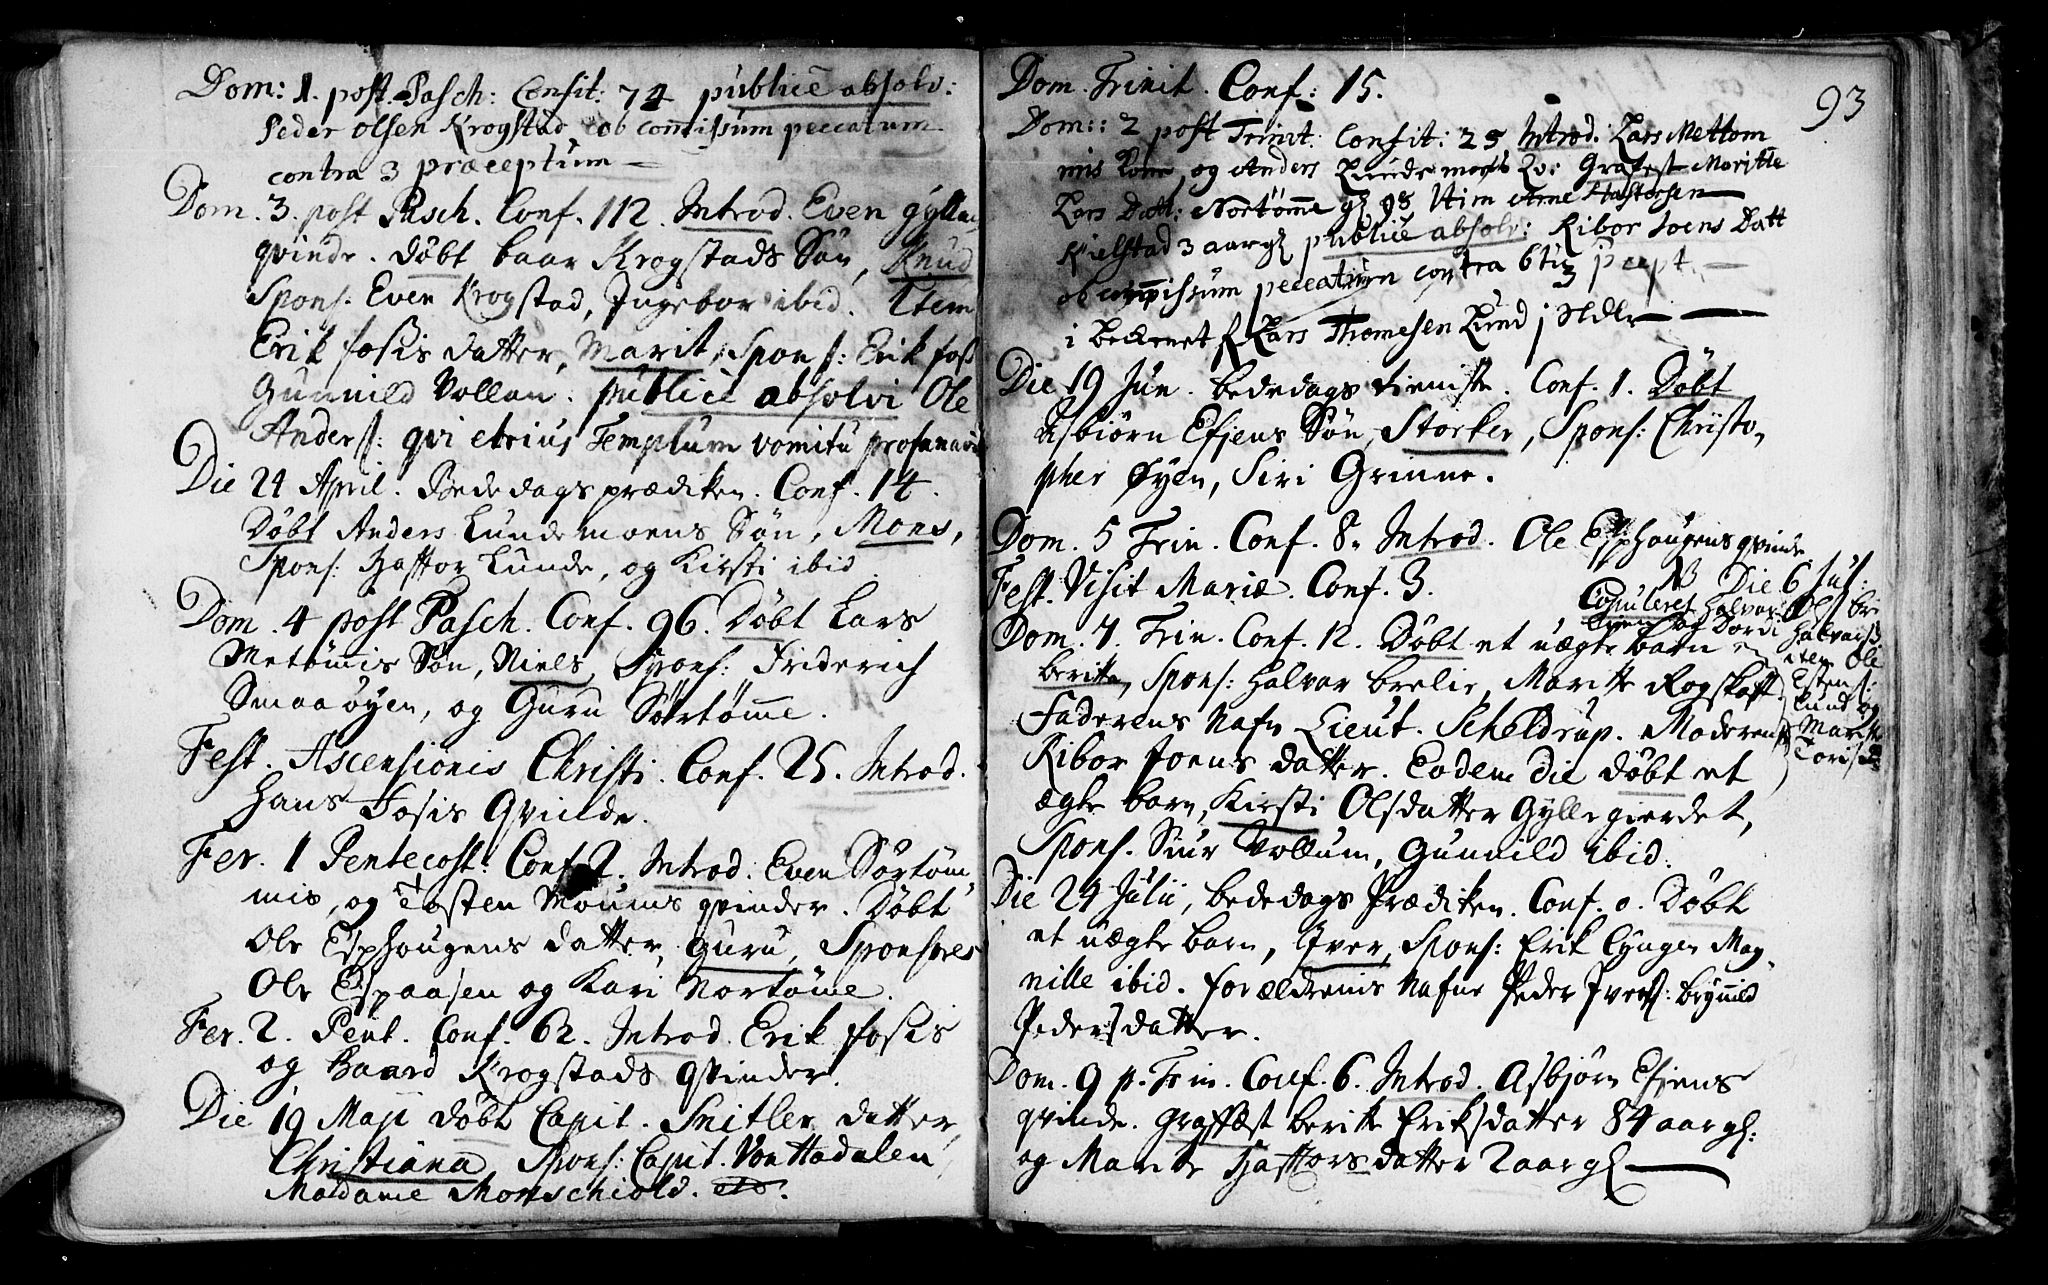 Dom: 1. post. Pasch: Consit: 74 publicè absolv:
Peder Olsen Krogstad ob comissum peccatum
contra 3 præceptum
Dom. 3. post Pasch. Conf. 112. Introd. Even Gylla
qvinde. Døbt baar Krogstads Søn, Knud
Spons. Even Krogstad, Ingebor ibid. Item
Erik Fosis datter, Marit, Spons: Erik Foss
Gunnild Vollan. publicè absolvi Ole
Anders: qvi Templum vomitu profanavit
Die 24 April. Bededags prædiken. Conf. 14.
Døbt Anders Lundemoens Søn, Mons,
Spons: Haftor Lunde, og Kirsti ibid.
Dom. 4 post Pasch. Conf. 96. Døbt Lars
Metømmis Søn, Niels, Spons: Friderich
Smaaøyen, og Guru Sørtømme.
Fest. Ascensionis Christi. Conf. 25. Introd.
Hans Fosis Qvinde.
Fer. 1 Pentecost: Conf. 2. Introd. Even Sørtøm
mis, og Tosten Moums qvinder. Døbt
Ole Esphougens datter, Guru, Sponsores
Ole Espaasen og Kari Nortøme.
Fer. 2. Pent. Conf. 62. Introd. Erik Fosis
og Baard Krogstads Qvinder.
Die 19 Maji Døbt Capit. Snitler datter,
Christiana, Spons: Capit. Von Hadalen
Madame Monschiold.
93
Dom. Trinit. Conf: 15.
Dom:: 2 post Trinit: Consit: 25 Introd. Lars Mettom
mis Kone, og Anders Lundemoens Qv: Grafest Maritte
Lars Datt: Nortømme gl 98 Item Arne Haftorsen
Kielstad 3 aar gl publicè absolv: Ribor Joens Datt
ob comissum peccatum contra 6tum pcept.
i Lars Thomesen Lund
Die 19 Jun. bededags tieniste. Conf. 1. Døbt
Asbiørn Efjens Søn, Storker, Spons: Christo,
pher Øyen, Siri Grinne.
Dom. 5 Trin. Conf. 8. Introd. Ole Esphougens qvinde.
Fest. Visit Mariæ. Conf. 3.
NB Die 6 Jul:
Copuleret Halvar Ols: bri
og Dordi Halvars
item Ole
Estens:
Lund og
Marit
Toris
Dom. 7. Trin. Conf. 12. Døbt et uægte barn
beritte, Spons: Halvar brelie, Maritte Rogskaft
Faderens Nafn Lieut. Scheldrup. Moderens
Ribor Joens datter. Eodem die døbt et
ægte barn, Kirsti Olsdatter Gyllegierdet,
Spons. Siur Vollum, Gunnild ibid:
Die 24 Julii, bededags Prædiken. Conf. 0. Døbt
et uægte barn, Iver, Spons: Erik Lynger Mag,
nille ibid. forældrenis Nafne Peder Ivers: brynild
Pedersdatter.
Dom. 9 p. Trin. Conf. 6. Introd. Asbjørn Efjens
qvinde. Graffæst beritte Eriksdatter 84 aar gl:
og Marite Haftorsdatter 2 aar gl